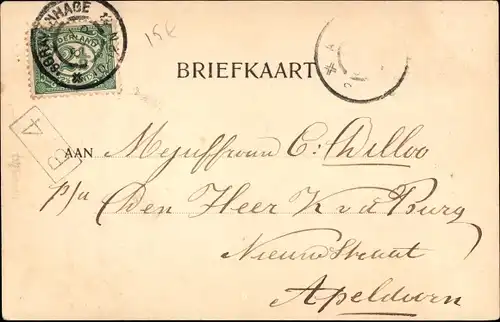 'S-GRAVENHAGE
NEDERLAND
15€
BRIEFKAART
AAN Mejuffrouw C: Willoo
p/a Den Heer K v d Burg
Nieuwstraat
Apeldoorn
B 4